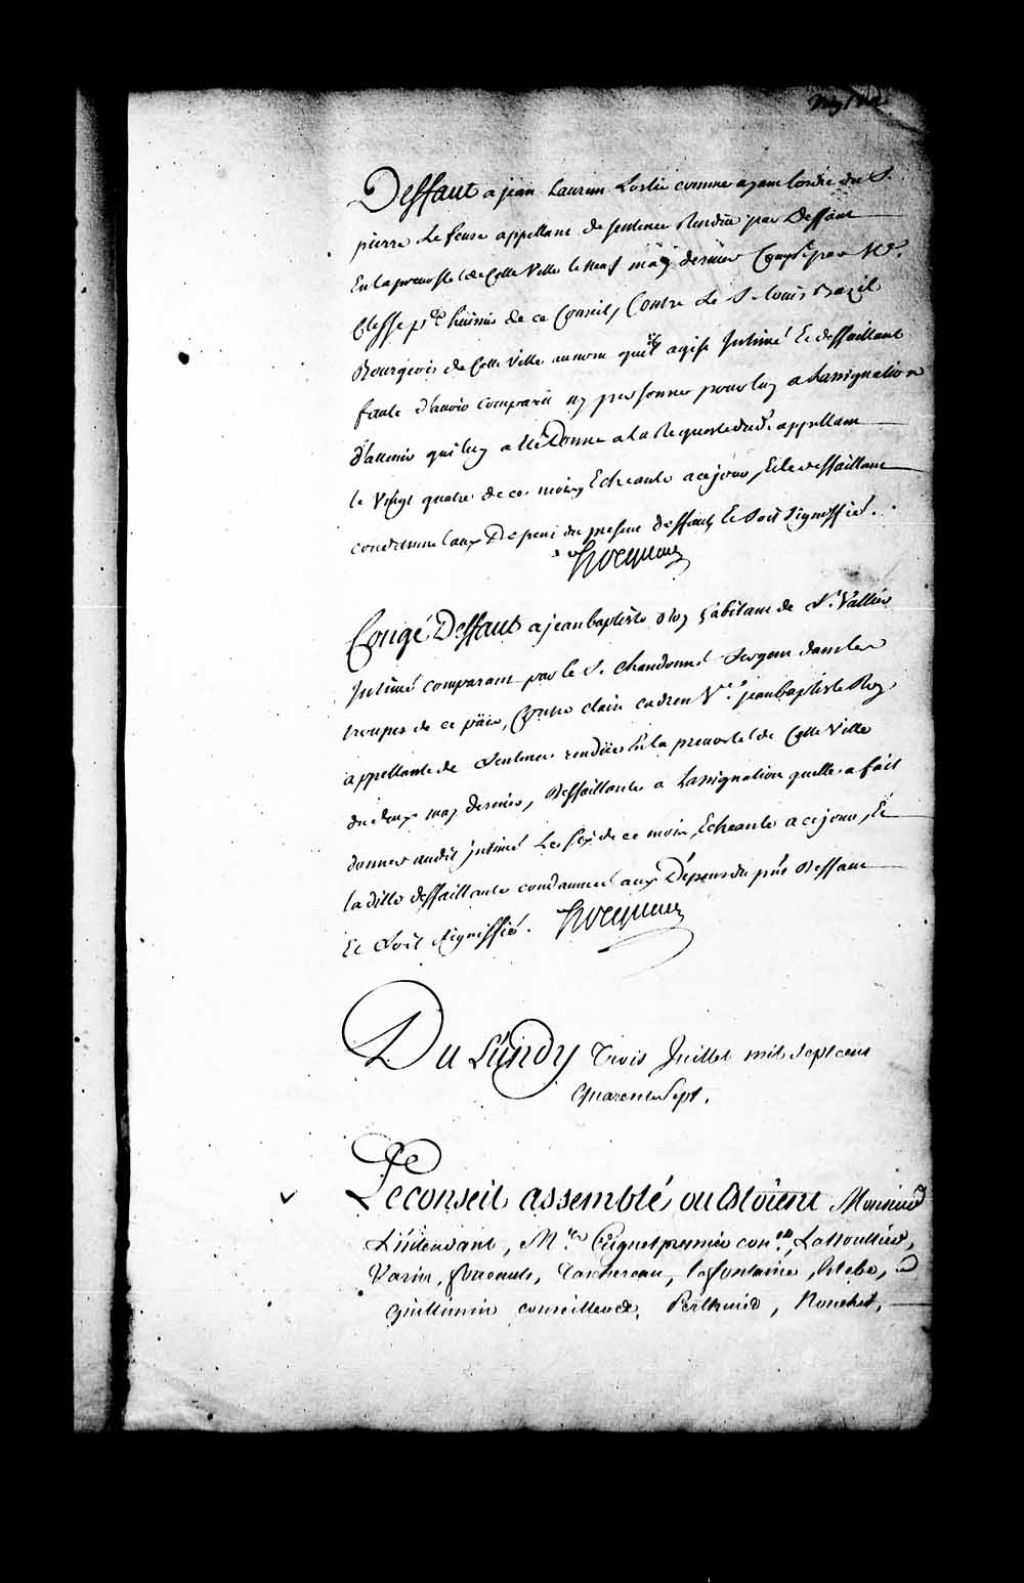 Deffaut a jean Laurin Lortie comme ayant lordre du S.
pierre Lefeuvre appellant de sentence Rendüe par Deffaut
En la prevosté de Cette Ville le neuf may dernier Compt. par Me.
Clesse pr. huissier de ce Conseil, Contre Le S. Louis Bazil
Bourgeois de Cette Ville au nom quil agist Intimé Et deffaillant
faute d'avoir comparu ny personne pour luy a Lassignation
qui luy a eté Donné a la Requeste dud. appellant
le Vingt quatre de ce mois Echeante a ce jour, Et le deffaillant
condamné aux Depens du present deffaut Et Soit Signiffié.
hocquart
Congé Deffaut a jean baptiste Roy habitant de St. Vallier
Intimé comparant par le S. Chandonné Sergent dans les
troupes de ce païs, Contre claire cadrin Ve. jean baptiste Roy
appellante de Sentence rendüe en la prevosté de Cette Ville
du deux may dernier, Deffaillante a Lassignation quelle a fait
donner audit Intimé Le six de ce mois, Echeante a ce jour, Et
la ditte deffaillante condamnée aux Dépens du pnt Deffaut
Et Soit signiffié. hocquart
Du Lundy Trois Juillet mil Sept cent
Quarente Sept.
Le Conseil assemblé ou Etoient Monsieur
L'intendant, Me. Cugnet premier coner., Lanoullier,
Varin, foucault, Taschereau, lafontaine, Estebe, et
Guillimin conseillers, Perthuis, Nouchet,